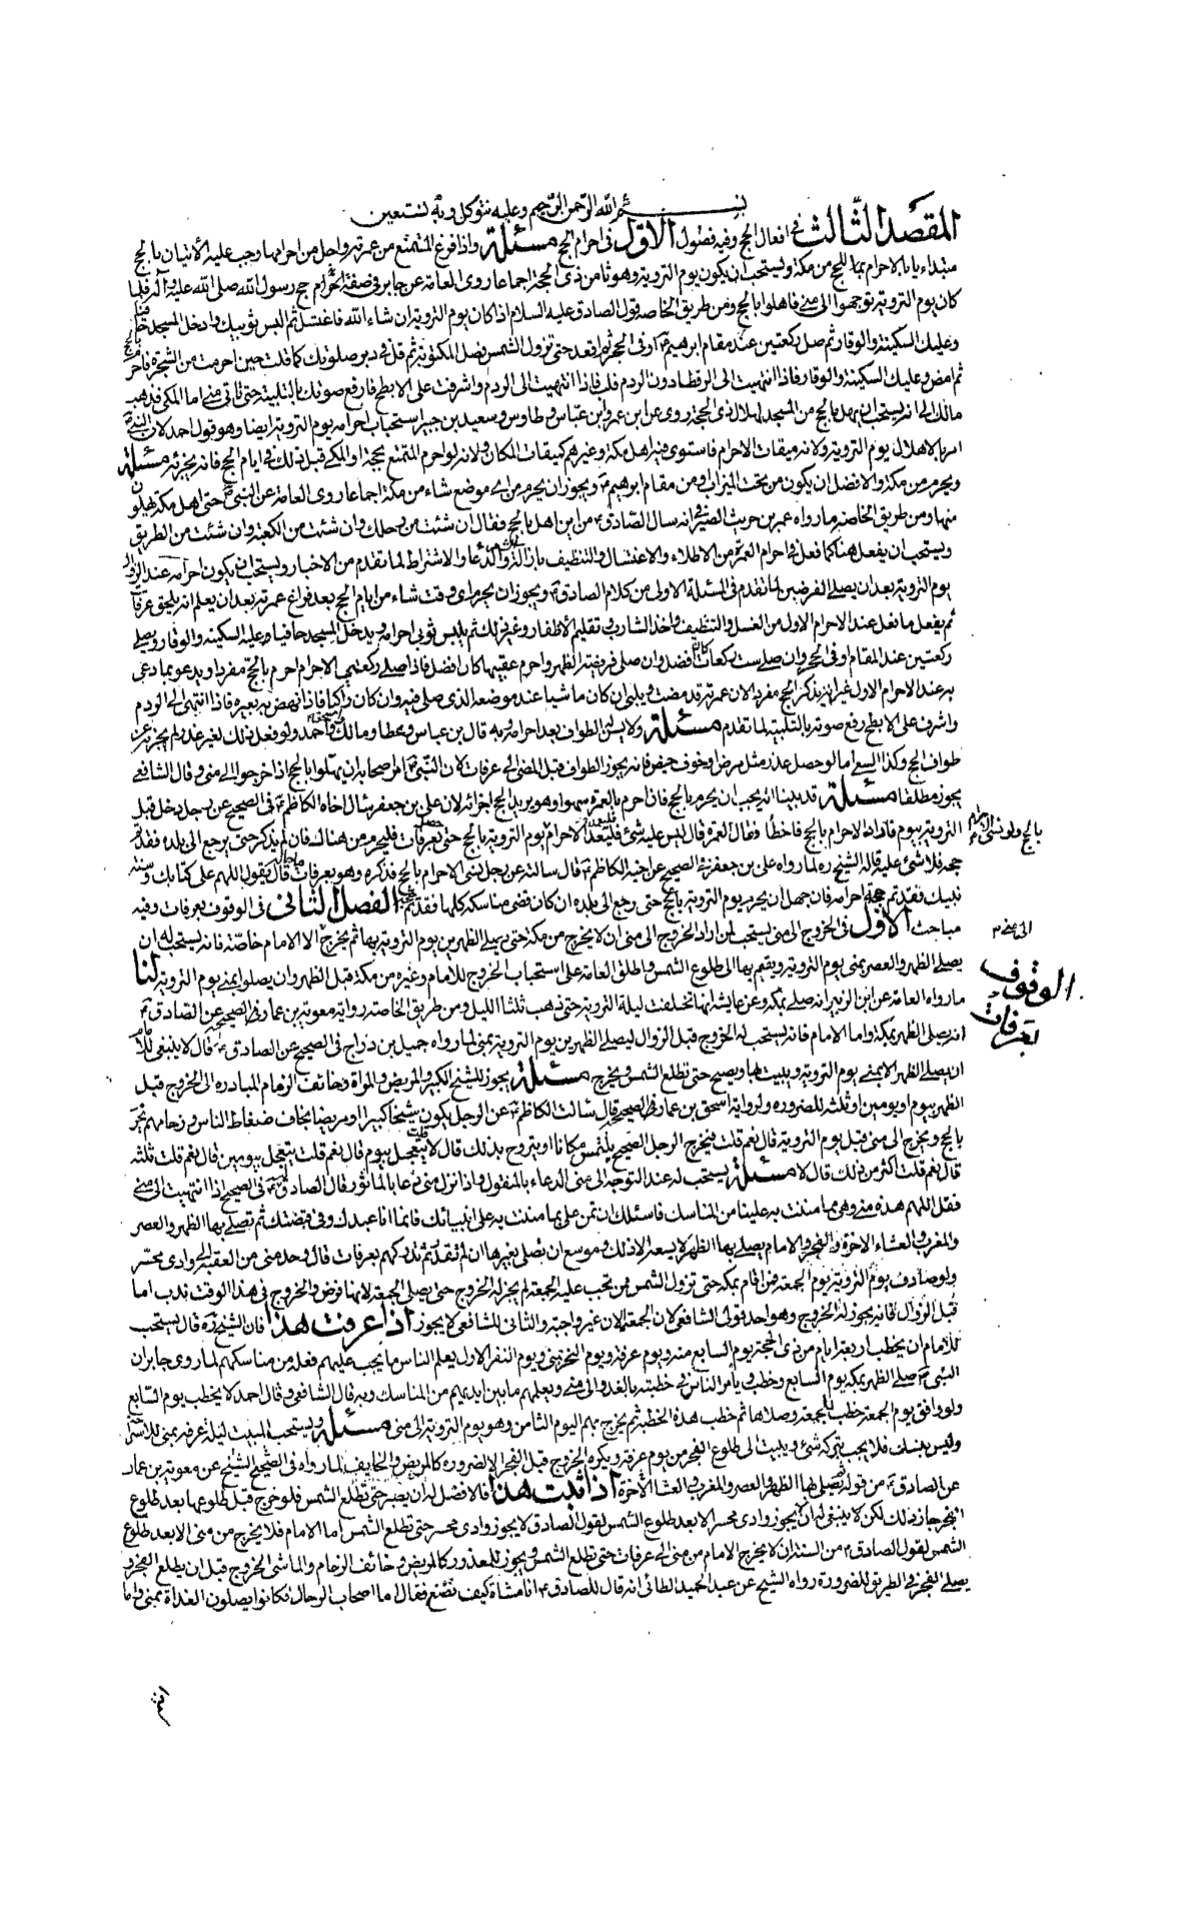 بسم الله الرحمن الرحيم وعليه نتوكل وبه نستعين
المقصد الثالث في افعال الحج وفيه فصول الاول في احرام الحج مسئلة واذا فرغ المتمتع من عمرته واحل من احرامها وجب عليه الاتيان بالحج
مبتداء بالاحرام للحج من مكة ويستحب ان يكون يوم التروية وهو ثامن ذي الحجة اجماعا روى العامة عن جابر في صفة حج رسول الله صلى الله عليه وآله فلما
كان يوم التروية توجهوا الى منى فاهلوا بالحج ومن طريق الخاصة قول الصادق عليه السلام اذا كان يوم التروية ان شاء الله فاغتسل ثم البس ثوبيك وادخل المسجد حافيا
وعليك السكينة والوقار ثم صل ركعتين عند مقام ابرهيم او في الحجر ثم اقعد حتى تزول الشمس فصل المكتوبة ثم قل في دبر صلوتك كما قلت حين احرمت من الشجرة فاحرم بالحج
ثم امض وعليك السكينة والوقار فاذا انتهيت الى الرقطا دون الردم فلب فاذا انتهيت الى الردم واشرفت على الابطح فارفع صوتك بالتلبية حتى تاتي منى اما المكي فذهب
مالك الى انه يستحب ان يهل بالحج من المسجد لهلال ذي الحجة وروى عن ابن عمر وابن عباس وطاوس وسعيد بن جبير استحباب احرامه يوم التروية ايضا وهو قول احمد لان النبي
امر بالاهلال يوم التروية ولانه ميقات الاحرام فاستوى فيه اهل مكة وغيرهم كميقات المكان ولانه لو احرم المتمتع بحجة او المكي قبل ذلك في ايام الحج فانه يجزئه مسئلة
ويحرم من مكة والافضل ان يكون من تحت الميزاب او من مقام ابرهيم ويجوز ان يحرم من اي موضع شاء من مكة اجماعا روى العامة عن النبي حتى اهل مكة يهلون
منها ومن طريق الخاصة ما رواه عمر بن حريث الصيرفي انه سال الصادق من اين اهل بالحج فقال ان شئت من رحلك وان شئت من الكعبة وان شئت من الطريق
ويستحب ان يفعل هنا كما فعل في احرام العمرة من الاطلاء والاغتسال والتنظيف بازالة الشعر والدعاء والاشتراط لما تقدم من الاخبار ويستحب ان يكون احرامه عند الزوال
يوم التروية بعد ان يصلى الفرضين لما تقدم في المسئلة الاولى من كلام الصادق ويجوز ان يحرم اي وقت شاء من ايام الحج بعد فراغ عمرته بعد ان يعلم انه يلحق عرفات
ثم يفعل ما فعل عند الاحرام الاول من الغسل والتنظيف واخذ الشارب وتقليم الاظفار وغير ذلك ثم يلبس ثوبي احرامه ويدخل المسجد حافيا وعليه السكينة والوقار ويصلى
ركعتين عند المقام او في الحجر وان صلى ست ركعات كان افضل وان صلى فريضة الظهر واحرم عقيبها كان افضل فاذا صلى ركعتي الاحرام احرم بالحج مفردا ويدعو بما دعى
به عند الاحرام الاول غير انه يذكر الحج مفردا لان عمرته قد مضت ويلبى ان كان ماشيا عند موضعه الذى صلى فيه وان كان راكبا فاذا نهض به بعيره فاذا انتهى الى الردم
واشرف على الابطح رفع صوته بالتلبية لما تقدم مسئلة ولا يسن الطواف بعد احرامه وبه قال ابن عباس وعطا ومالك واحمد ولو فعل ذلك لغير عذر لم يجزئه عن
طواف الحج وكذا السعي اما لو حصل عذر مثل مرض او خوف حيض فانه يجوز الطواف قبل المضى الى عرفات لان النبي امر اصحابه ان يهلوا بالحج اذا خرجوا الى منى وقال الشافعي
يجوز مطلقا مسئلة قد بينا انه يجب ان يحرم بالحج فان احرم بالعمرة سهوا وهو يريد الحج اجزائه لان علي بن جعفر سال اخاه الكاظم في الصحيح عن رجل دخل قبل
التروية بيوم فاراد الاحرام بالحج فاخطأ فقال العمرة قال ليس عليه شئ فليعد الاحرام يوم التروية بالحج حتى حصل بعرفات فليحرم من هناك فان لم يذكر حتى يرجع الى بلده فقد تم
بالحج ولو نسى الاحرام
حجه فلا شئ عليه قاله الشيخ ره لما رواه علي بن جعفر في الصحيح عن اخيه الكاظم قال سالته عن رجل نسى الاحرام بالحج فذكره وهو بعرفات ما حاله قال يقول اللهم على كتابك وسنة
نبيك فقد تم احرامه فان جهل ان يحرم يوم التروية بالحج حتى رجع الى بلده ان كان قضى مناسكه كلها فقد تم حجه الفصل الثاني في الوقوف بعرفات وفيه
مباحث الاول في الخروج الى منى يستحب لمن اراد الخروج الى منى ان لا يخرج من مكة حتى يصلى الظهرين يوم التروية بها ثم يخرج الا الامام خاصة فانه يستحب له ان
الى منى
يصلى الظهر والعصر بمنى يوم التروية ويقيم بها الى طلوع الشمس واطلق العامة على استحباب الخروج للامام وغيره من مكة قبل الظهر وان يصلوا بمنى يوم التروية لنا
الوقوف
بعرفات
ما رواه العامة عن ابن الزبير انه صلى بمكة وعن عايشة انها تخلفت ليلة التروية حتى ذهب ثلثا الليل ومن طريق الخاصة رواية معوية بن عمار في الصحيح عن الصادق
انه يصلى الظهر بمكة واما الامام فانه يستحب له الخروج قبل الزوال ليصلى الظهرين يوم التروية بمنى لما رواه جميل بن دراج في الصحيح عن الصادق قال لا ينبغى للامام
ان يصلى الظهر الا بمنى يوم التروية ويبيت بها ويصبح حتى تطلع الشمس ويخرج مسئلة يجوز للشيخ الكبير والمريض والمراة وخائف الزحام المبادرة الى الخروج قبل
الظهر بيوم او يومين او ثلثة للضرورة ولرواية اسحق بن عمار في الصحيح قال سالت الكاظم عن الرجل يكون شيخا كبيرا او مريضا يخاف ضغاط الناس وزحامهم يحرم
بالحج ويخرج الى منى قبل يوم التروية قال نعم قلت فيخرج الرجل الصحيح يلتمس مكانا او يتروح بذلك قال لا قلت يتعجل بيوم قال نعم قلت يتعجل بيومين قال نعم قلت ثلثة
قال نعم قلت اكثر من ذلك قال لا مسئلة يستحب له عند التوجه الى منى الدعاء بالمنقول واذا نزل منى دعا بالماثور قال الصادق في الصحيح اذا انتهيت الى منى
فقل اللهم هذه منى وهي مما مننت به علينا من المناسك فاسئلك ان تمن على بما مننت به على انبيائك فانما انا عبدك وفي قبضتك ثم تصلى بها الظهر والعصر
والمغرب والعشاء الاخرة والفجر والامام يصلى بها الظهر لا يسعه الا ذلك وموسع ان تصلى بغيرها ان لم تقدر ثم تدركهم بعرفات قال وحد منى من العقبة الى وادى محسر
ولو صادف يوم التروية يوم الجمعة فمن اقام بمكة حتى تزول الشمس ممن تجب عليه الجمعة لم يجز له الخروج حتى يصلى الجمعة لانها فرض والخروج في هذا الوقت ندب اما
قبل الزوال فانه يجوز له الخروج وهو احد قولى الشافعي لان الجمعة الان غير واجبة والثاني للشافعي لا يجوز اذا عرفت هذا فان الشيخ ره قال يستحب
للامام ان يخطب اربعة ايام من ذي الحجة يوم السابع منه ويوم عرفة ويوم النحر بمنى ويوم النفر الاول يعلم الناس ما يجب عليهم فعله من مناسكهم لما روى جابر ان
النبي صلى الظهر بمكة يوم السابع وخطب ويأمر الناس في خطبته بالغدو الى منى ويعلمهم ما بين ايديهم من المناسك وبه قال الشافعي وقال احمد لا يخطب يوم السابع
ولو وافق يوم الجمعة خطب للجمعة وصلاها ثم خطب هذه الخطبة ثم يخرج بهم اليوم الثامن وهو يوم التروية الى منى مسئلة ويستحب المبيت ليلة عرفة بمنى للاستراحة
وليس بنسك فلا يجب بتركه شئ ويبيت الى طلوع الفجر من يوم عرفة ويكره الخروج قبل الفجر الا لضرورة كالمريض والخايف لما رواه في الصحيح الشيخ عن معوية بن عمار
عن الصادق من قوله ثم تصلى بها الظهر والعصر والمغرب والعشاء الاخرة اذا ثبت هذا فالافضل له ان يصبر حتى تطلع الشمس فلو خرج قبل طلوعها بعد طلوع
الفجر جاز ذلك لكن لا ينبغى له ان لا يجوز وادى محسر الا بعد طلوع الشمس لقول الصادق لا يجوز وادى محسر حتى تطلع الشمس اما الامام فلا يخرج من منى الا بعد طلوع
الشمس لقول الصادق من السنة ان لا يخرج الامام من منى الى عرفات حتى تطلع الشمس ويجوز للمعذور كالمريض وخائف الزحام والماشى الخروج قبل ان يطلع الفجر و
يصلى الفجر في الطريق للضرورة رواه الشيخ عن عبد الحميد الطائي انه قال للصادق انا مشاة كيف نصنع فقال اما اصحاب الرحال فكانوا يصلون الغداة بمنى واما